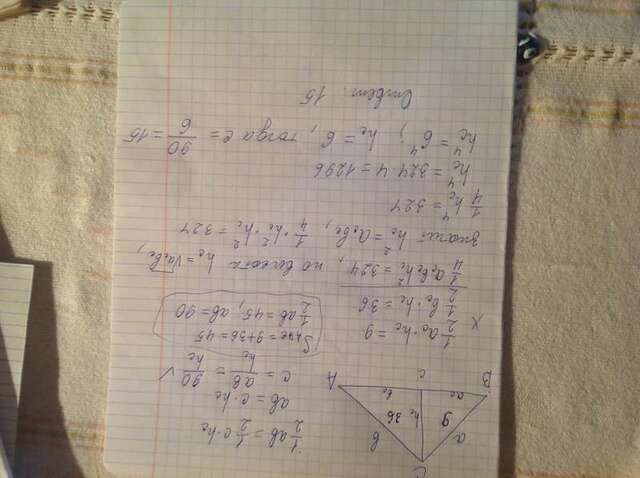 C
a b
9 h_c 36
a_c b_c
B c A
½ab = ½c·h_c
ab = c·h_c
c = ab/h_c = 90/h_c ✓
S_ABC = 9+36 = 45
½ab = 45, ab = 90
× ½a_c·h_c = 9
½b_c·h_c = 36
¼a_c b_c h_c² = 324, но высота h_c = √(a_c b_c),
значит h_c² = a_c b_c, ¼·h_c²·h_c² = 324
¼h_c⁴ = 324
h_c⁴ = 324·4 = 1296
h_c⁴ = 6⁴; h_c = 6, тогда c = 90/6 = 15
Ответ: 15